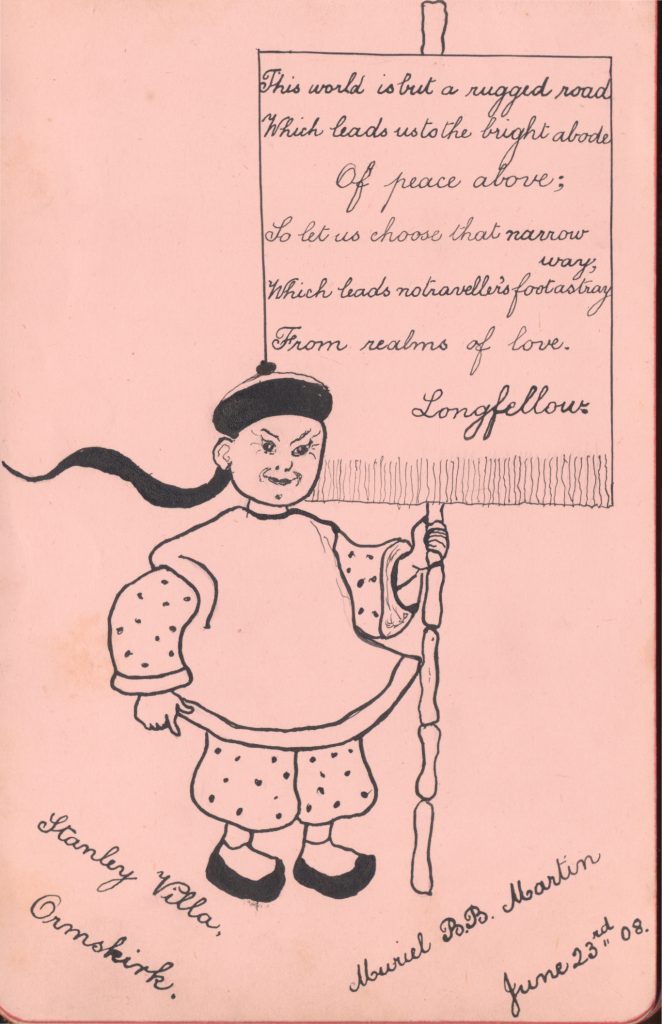 This world is but a rugged road
Which leads us to the bright abode
Of peace above;
So let us choose that narrow
way,
Which leads no traveller's foot astray
From realms of love.
Longfellow.
Stanley Villa,
Ormskirk.
Muriel B.B. Martin
June 23rd 08.